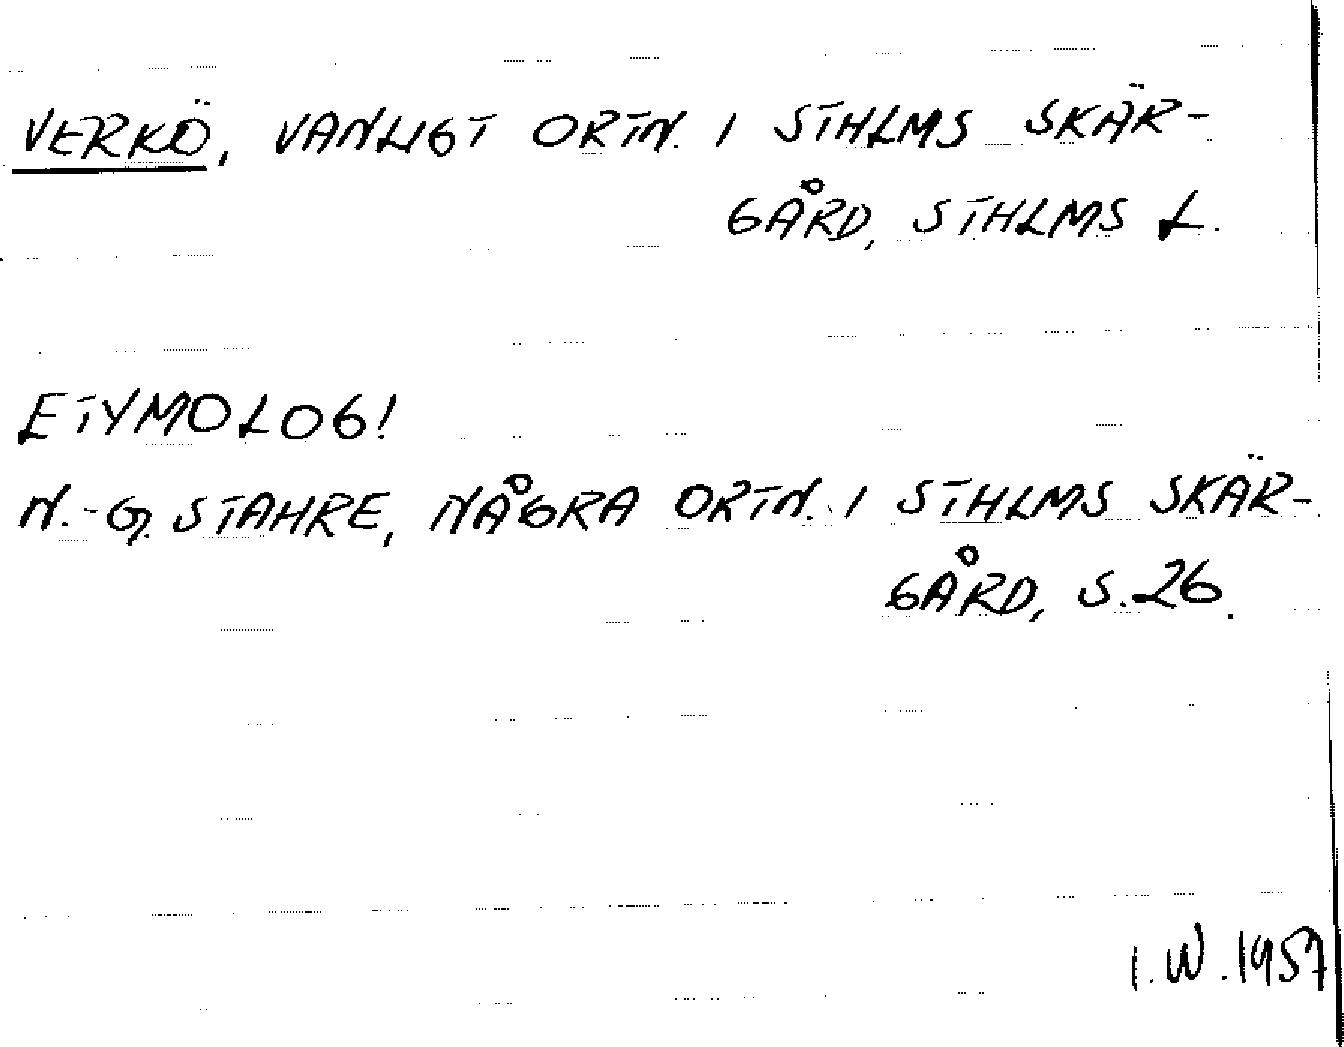 VERKÖ, VANLIGT ORTN. I STHLMS SKÄR-
GÅRD, STHLMS L.
ETYMOLOGI
N.-G. STAHRE, NÅGRA ORTN. I STHLMS SKÄR-
GÅRD, S. 26.
I. W. 1957